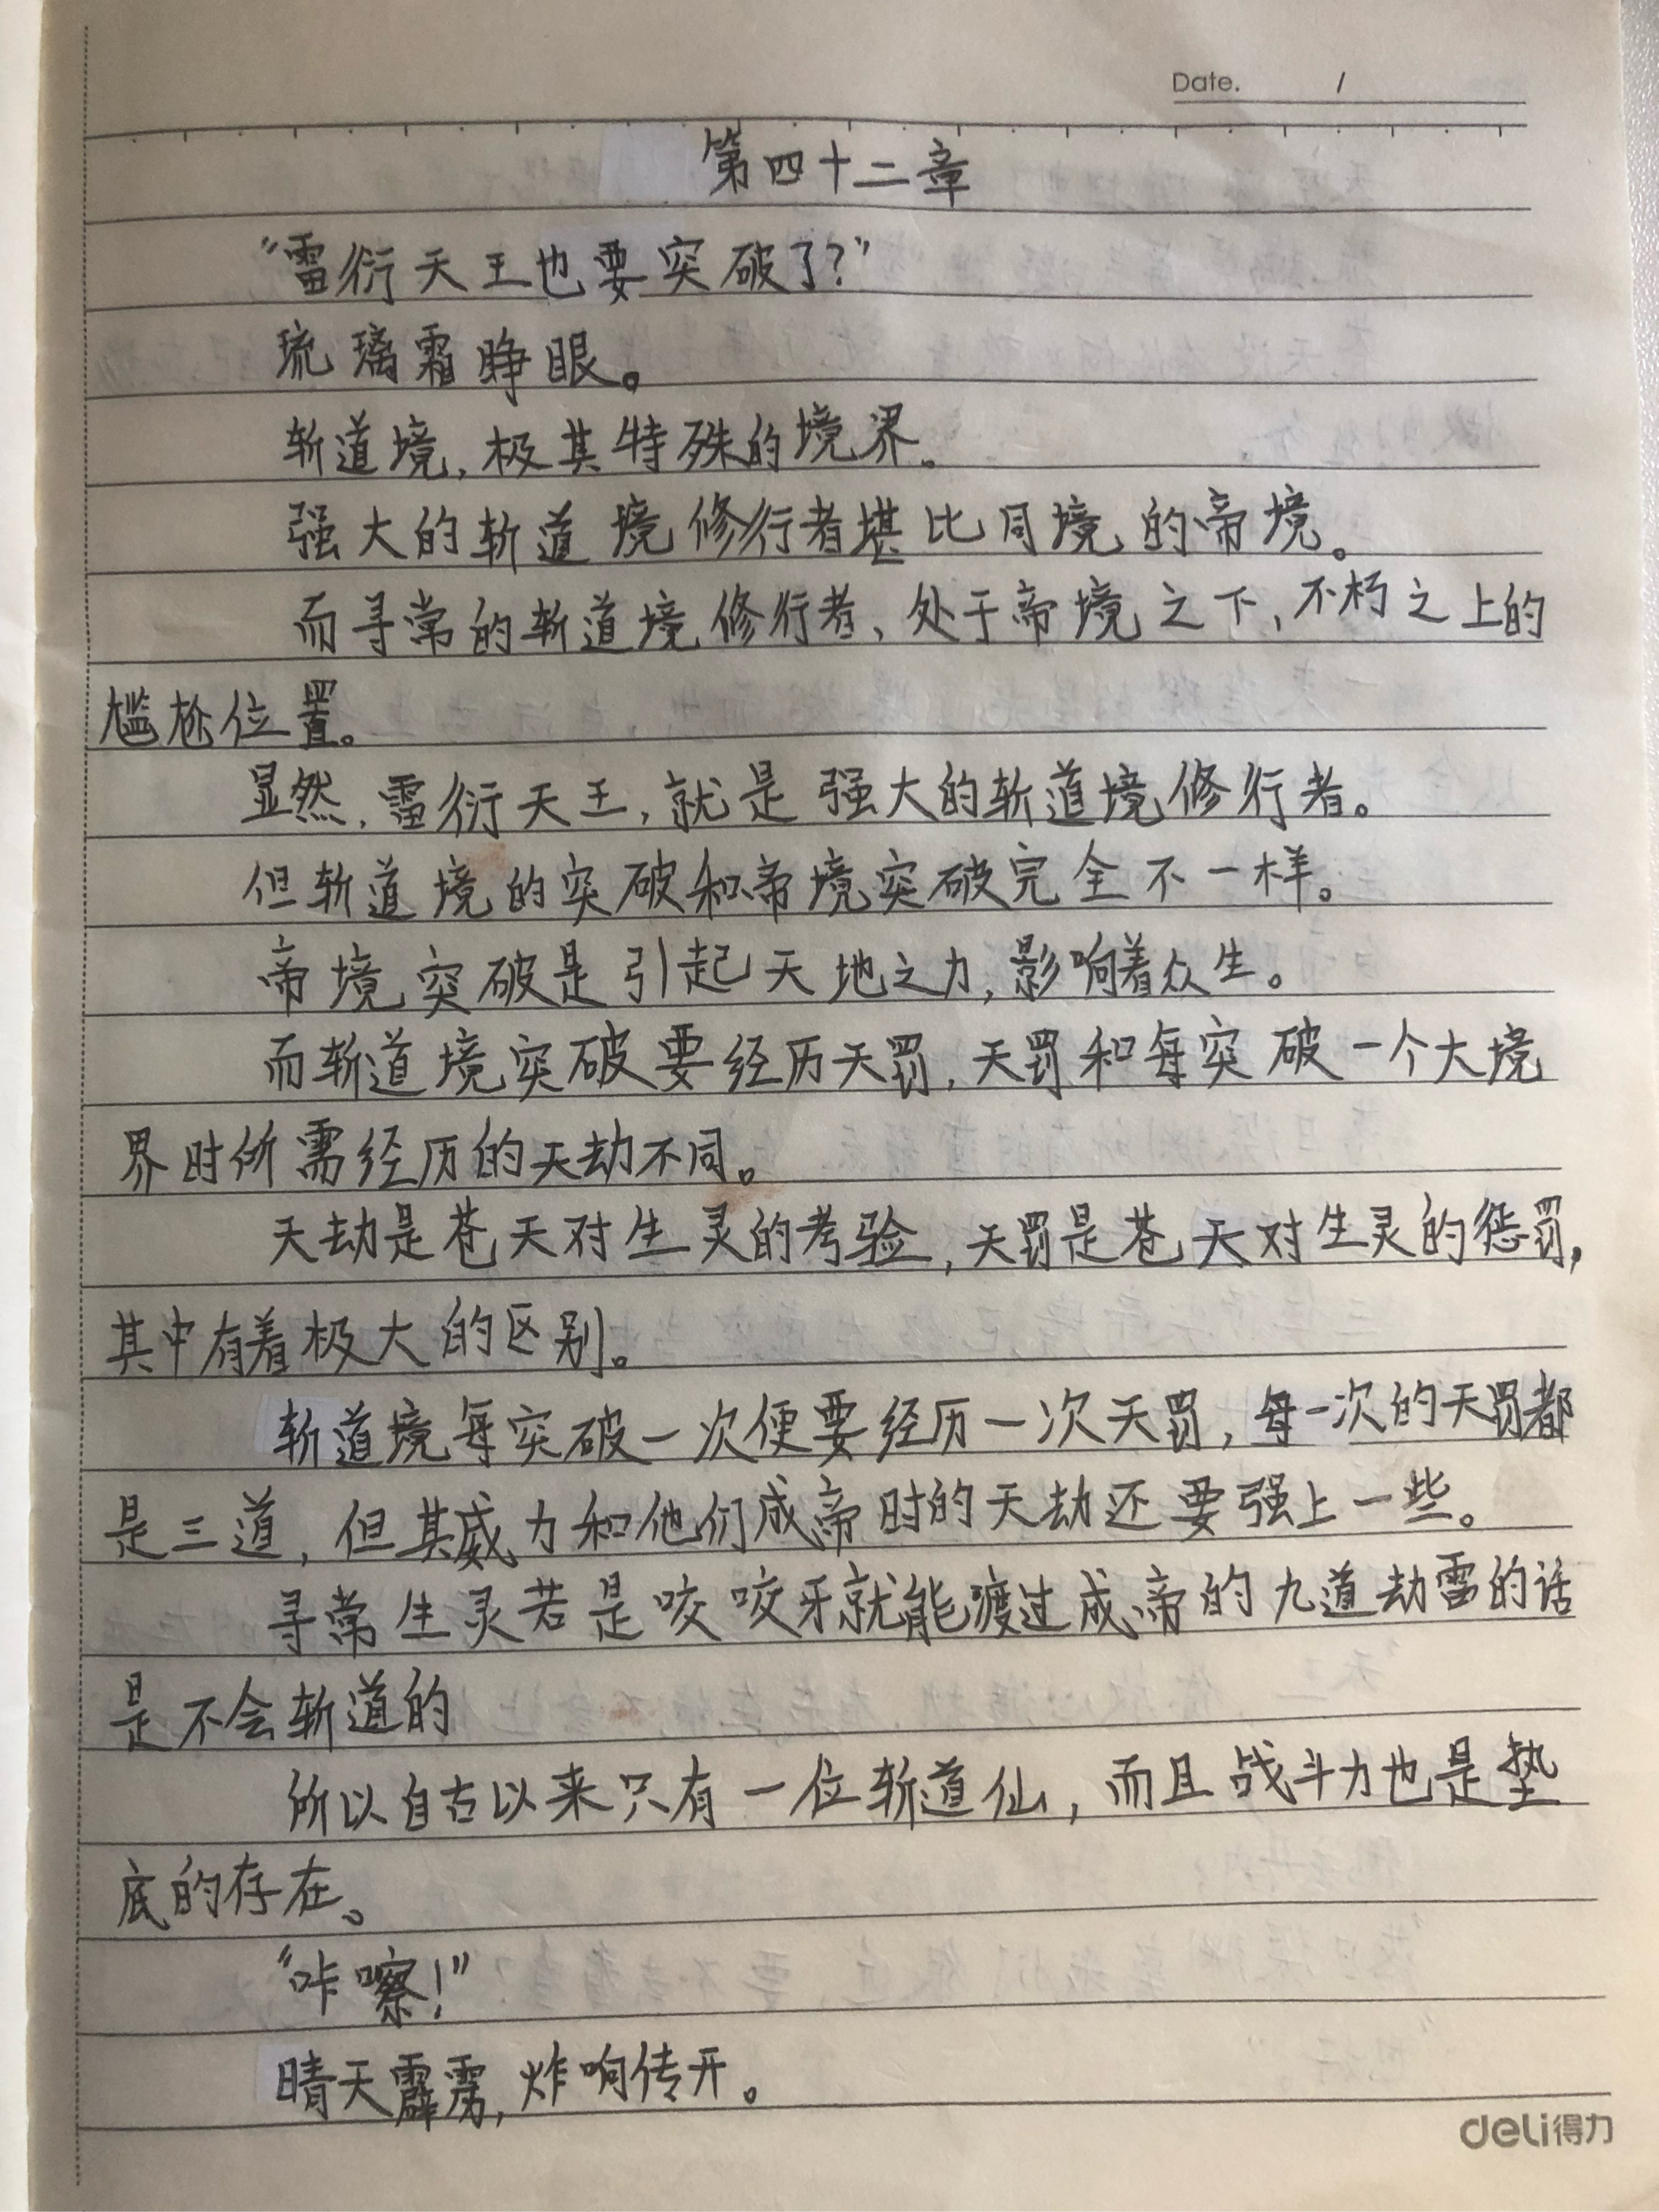 Date. /
第四十二章
“雷衍天王也要突破了?”
琉璃霜睁眼。
斩道境,极其特殊的境界。
强大的斩道境修行者堪比同境的帝境。
而寻常的斩道境修行者,处于帝境之下,不朽之上的
尴尬位置。
显然,雷衍天王,就是强大的斩道境修行者。
但斩道境的突破和帝境突破完全不一样。
帝境突破是引起天地之力,影响着众生。
而斩道境突破要经历天罚,天罚和每突破一个大境
界时所需经历的天劫不同。
天劫是苍天对生灵的考验,天罚是苍天对生灵的惩罚,
其中有着极大的区别。
斩道境每突破一次便要经历一次天罚,每一次的天罚都
是三道,但其威力和他们成帝时的天劫还要强上一些。
寻常生灵若是咬咬牙就能渡过成帝的九道劫雷的话
是不会斩道的
所以自古以来只有一位斩道仙,而且战斗力也是垫
底的存在。
“咔嚓!”
晴天霹雳,炸响传开。
deli得力